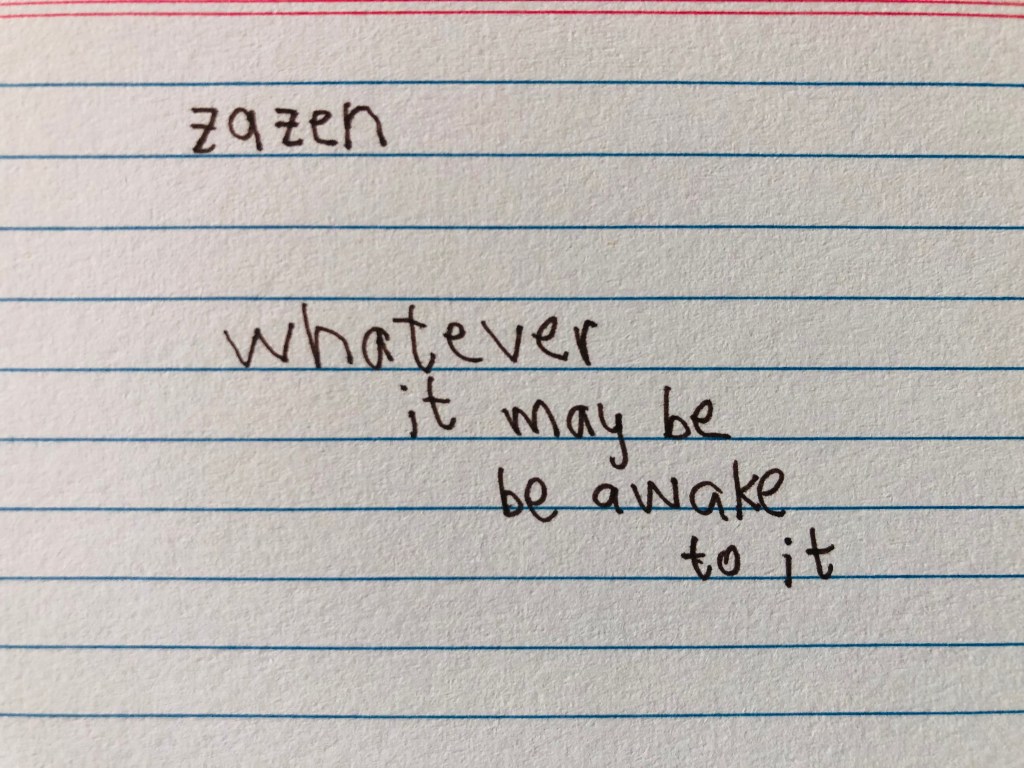 zazen
whatever
it may be
be awake
to it